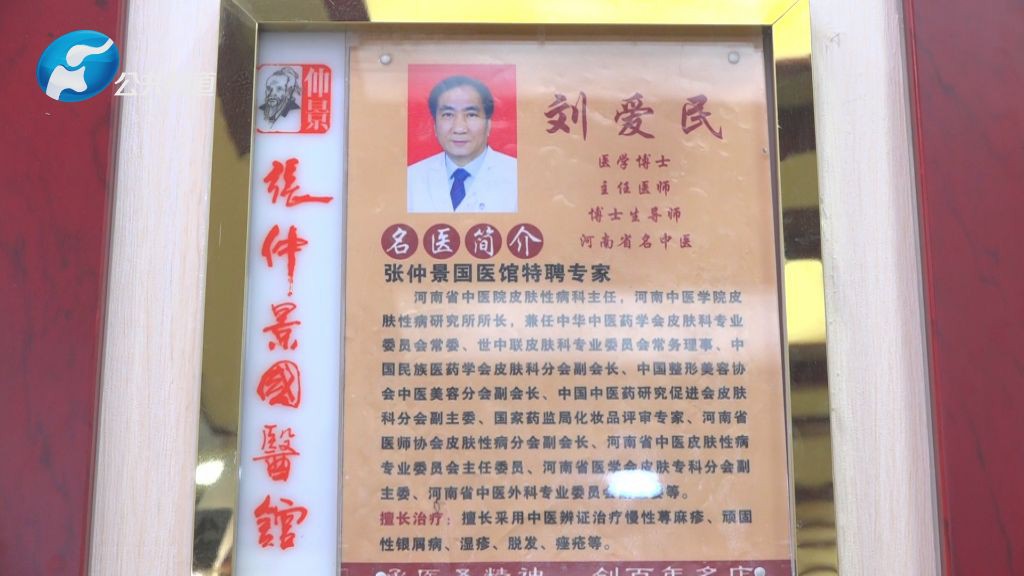 公共频道
仲景
張仲景國醫館
刘爱民
医学博士
主任医师
博士生导师
河南省名中医
名医简介
张仲景国医馆特聘专家
河南省中医院皮肤性病科主任，河南中医学院皮
肤性病研究所所长，兼任中华中医药学会皮肤科专业
委员会常委、世中联皮肤科专业委员会常务理事、中
国民族医药学会皮肤科分会副会长、中国整形美容协
会中医美容分会副会长、中国中医药研究促进会皮肤
科分会副主委、国家药监局化妆品评审专家、河南省
医师协会皮肤性病分会副会长、河南省中医皮肤性病
专业委员会主任委员、河南省医学会皮肤专科分会副
主委、河南省中医外科专业委员会等。
擅长治疗：擅长采用中医辨证治疗慢性荨麻疹、顽固
性银屑病、湿疹、脱发、痤疮等。